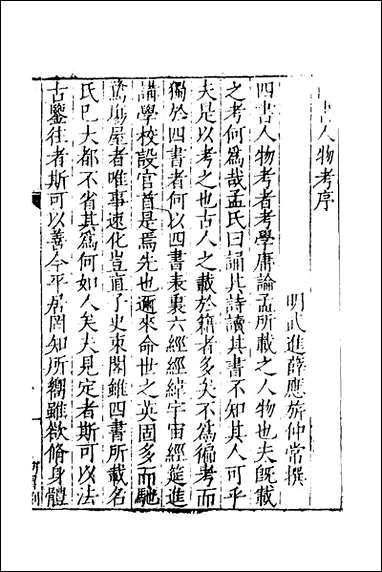 書人物考序
明武進薛應旂仲常撰
四書人物考者考學庸論孟所載之人物也夫既載
之考何爲哉孟氏曰誦其詩讀其書不知其人可乎
夫是以考之也古人之載於籍者多矣不爲徧考而
獨於四書者何以四書表裏六經經緯宇宙經筵進
講學校設官首是焉先也邇來命世之英固多而馳
騖塲屋者唯事速化豈直了史束閣雖四書所載名
氏巳大都不省其爲何如人矣夫見定者斯可以法
古鑒往者斯可以善今平居罔知所嚮雖欲脩身體